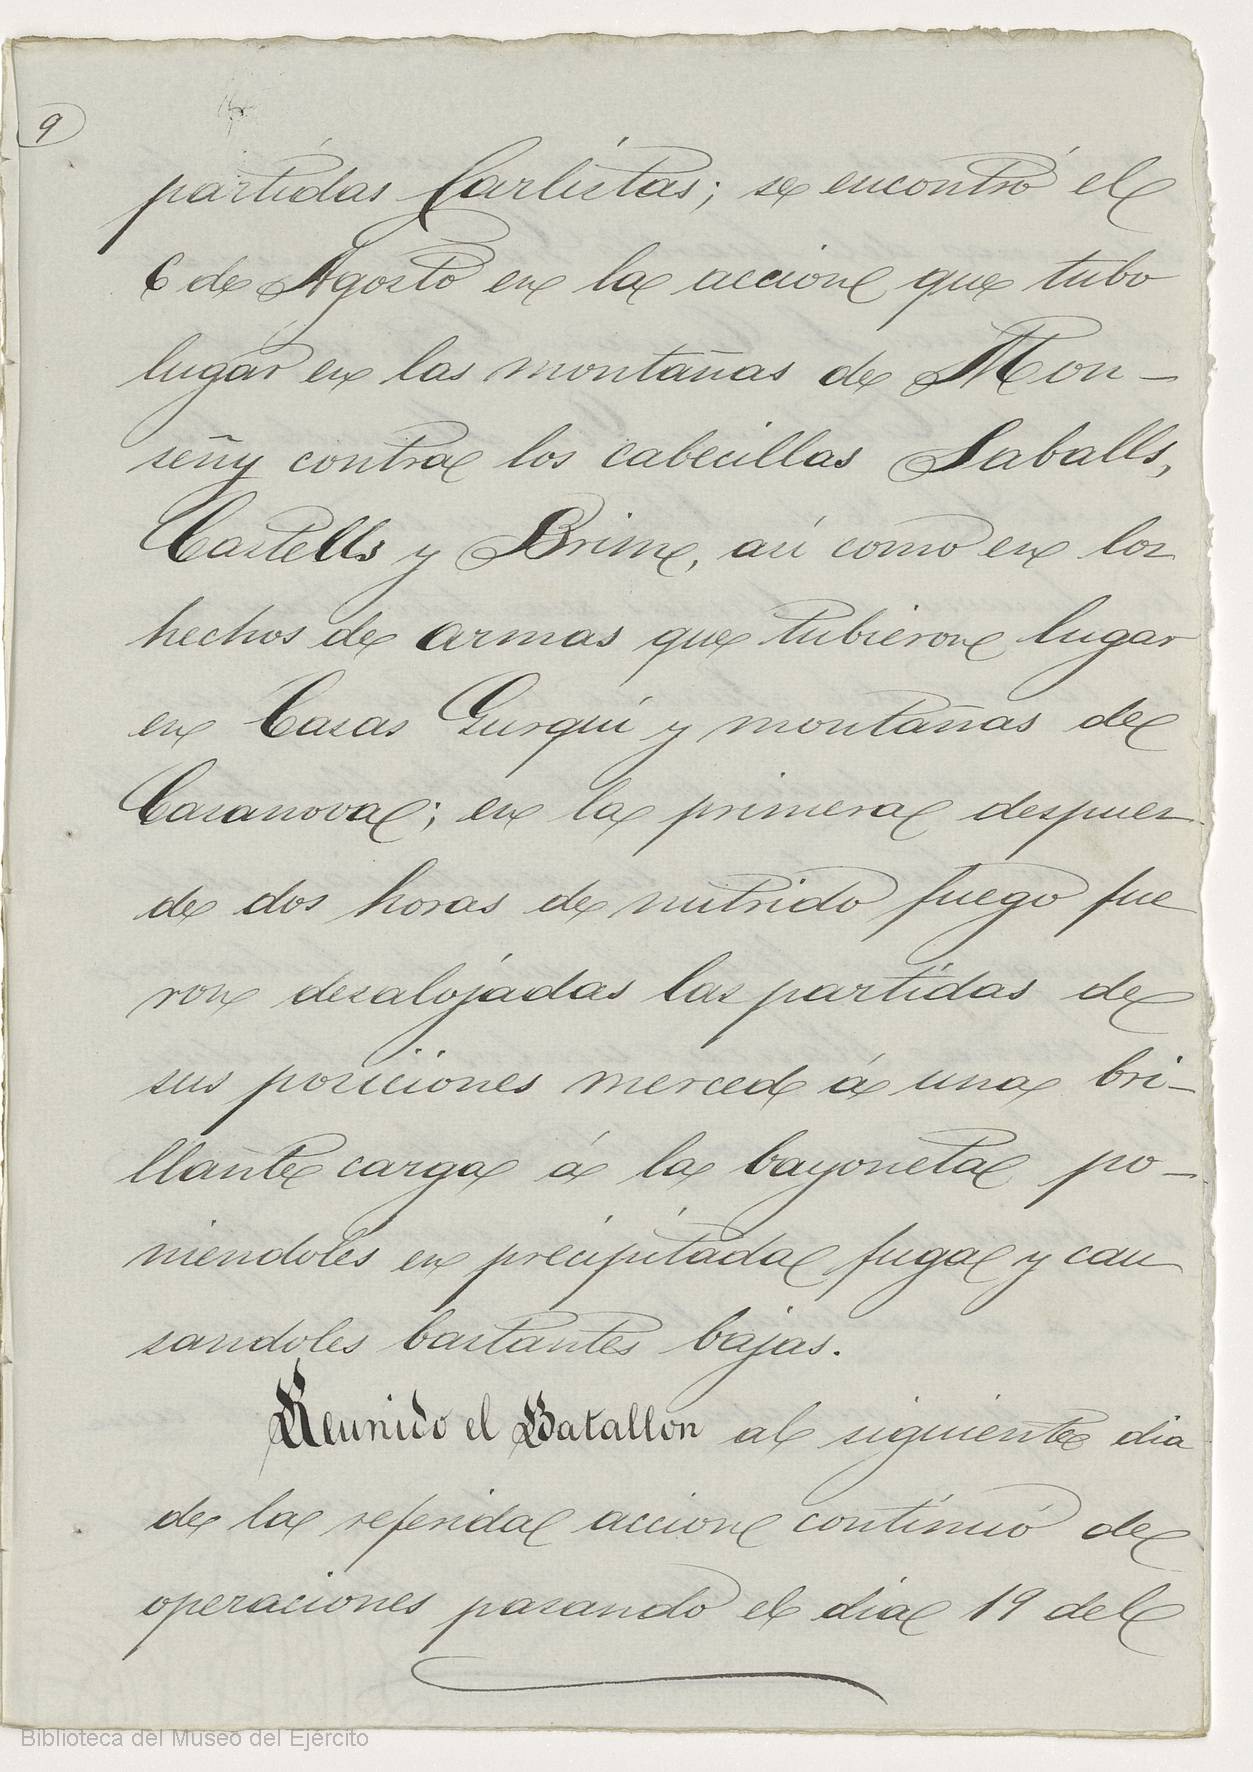 9
partidas Carlistas; se encontró el
6 de Agosto en la accion que tubo
lugar en las montañas de Mon-
señy contra los cabecillas Saballs,
Castells y Brim, asi como en los
hechos de armas que tubieron lugar
en Casas Gurqui y montañas de
Casanova; en la primera despues
de dos horas de nutrido fuego fue
ron desalojadas las partidas de
sus posiciones merced á una bri-
llante carga á la bayoneta po-
niendoles en precipitada fuga y cau
sandoles bastantes bajas.
Reunido el Batallon al siguiente dia
de la referida accion continuó de
operaciones pasando el dia 19 del
Biblioteca del Museo del Ejército